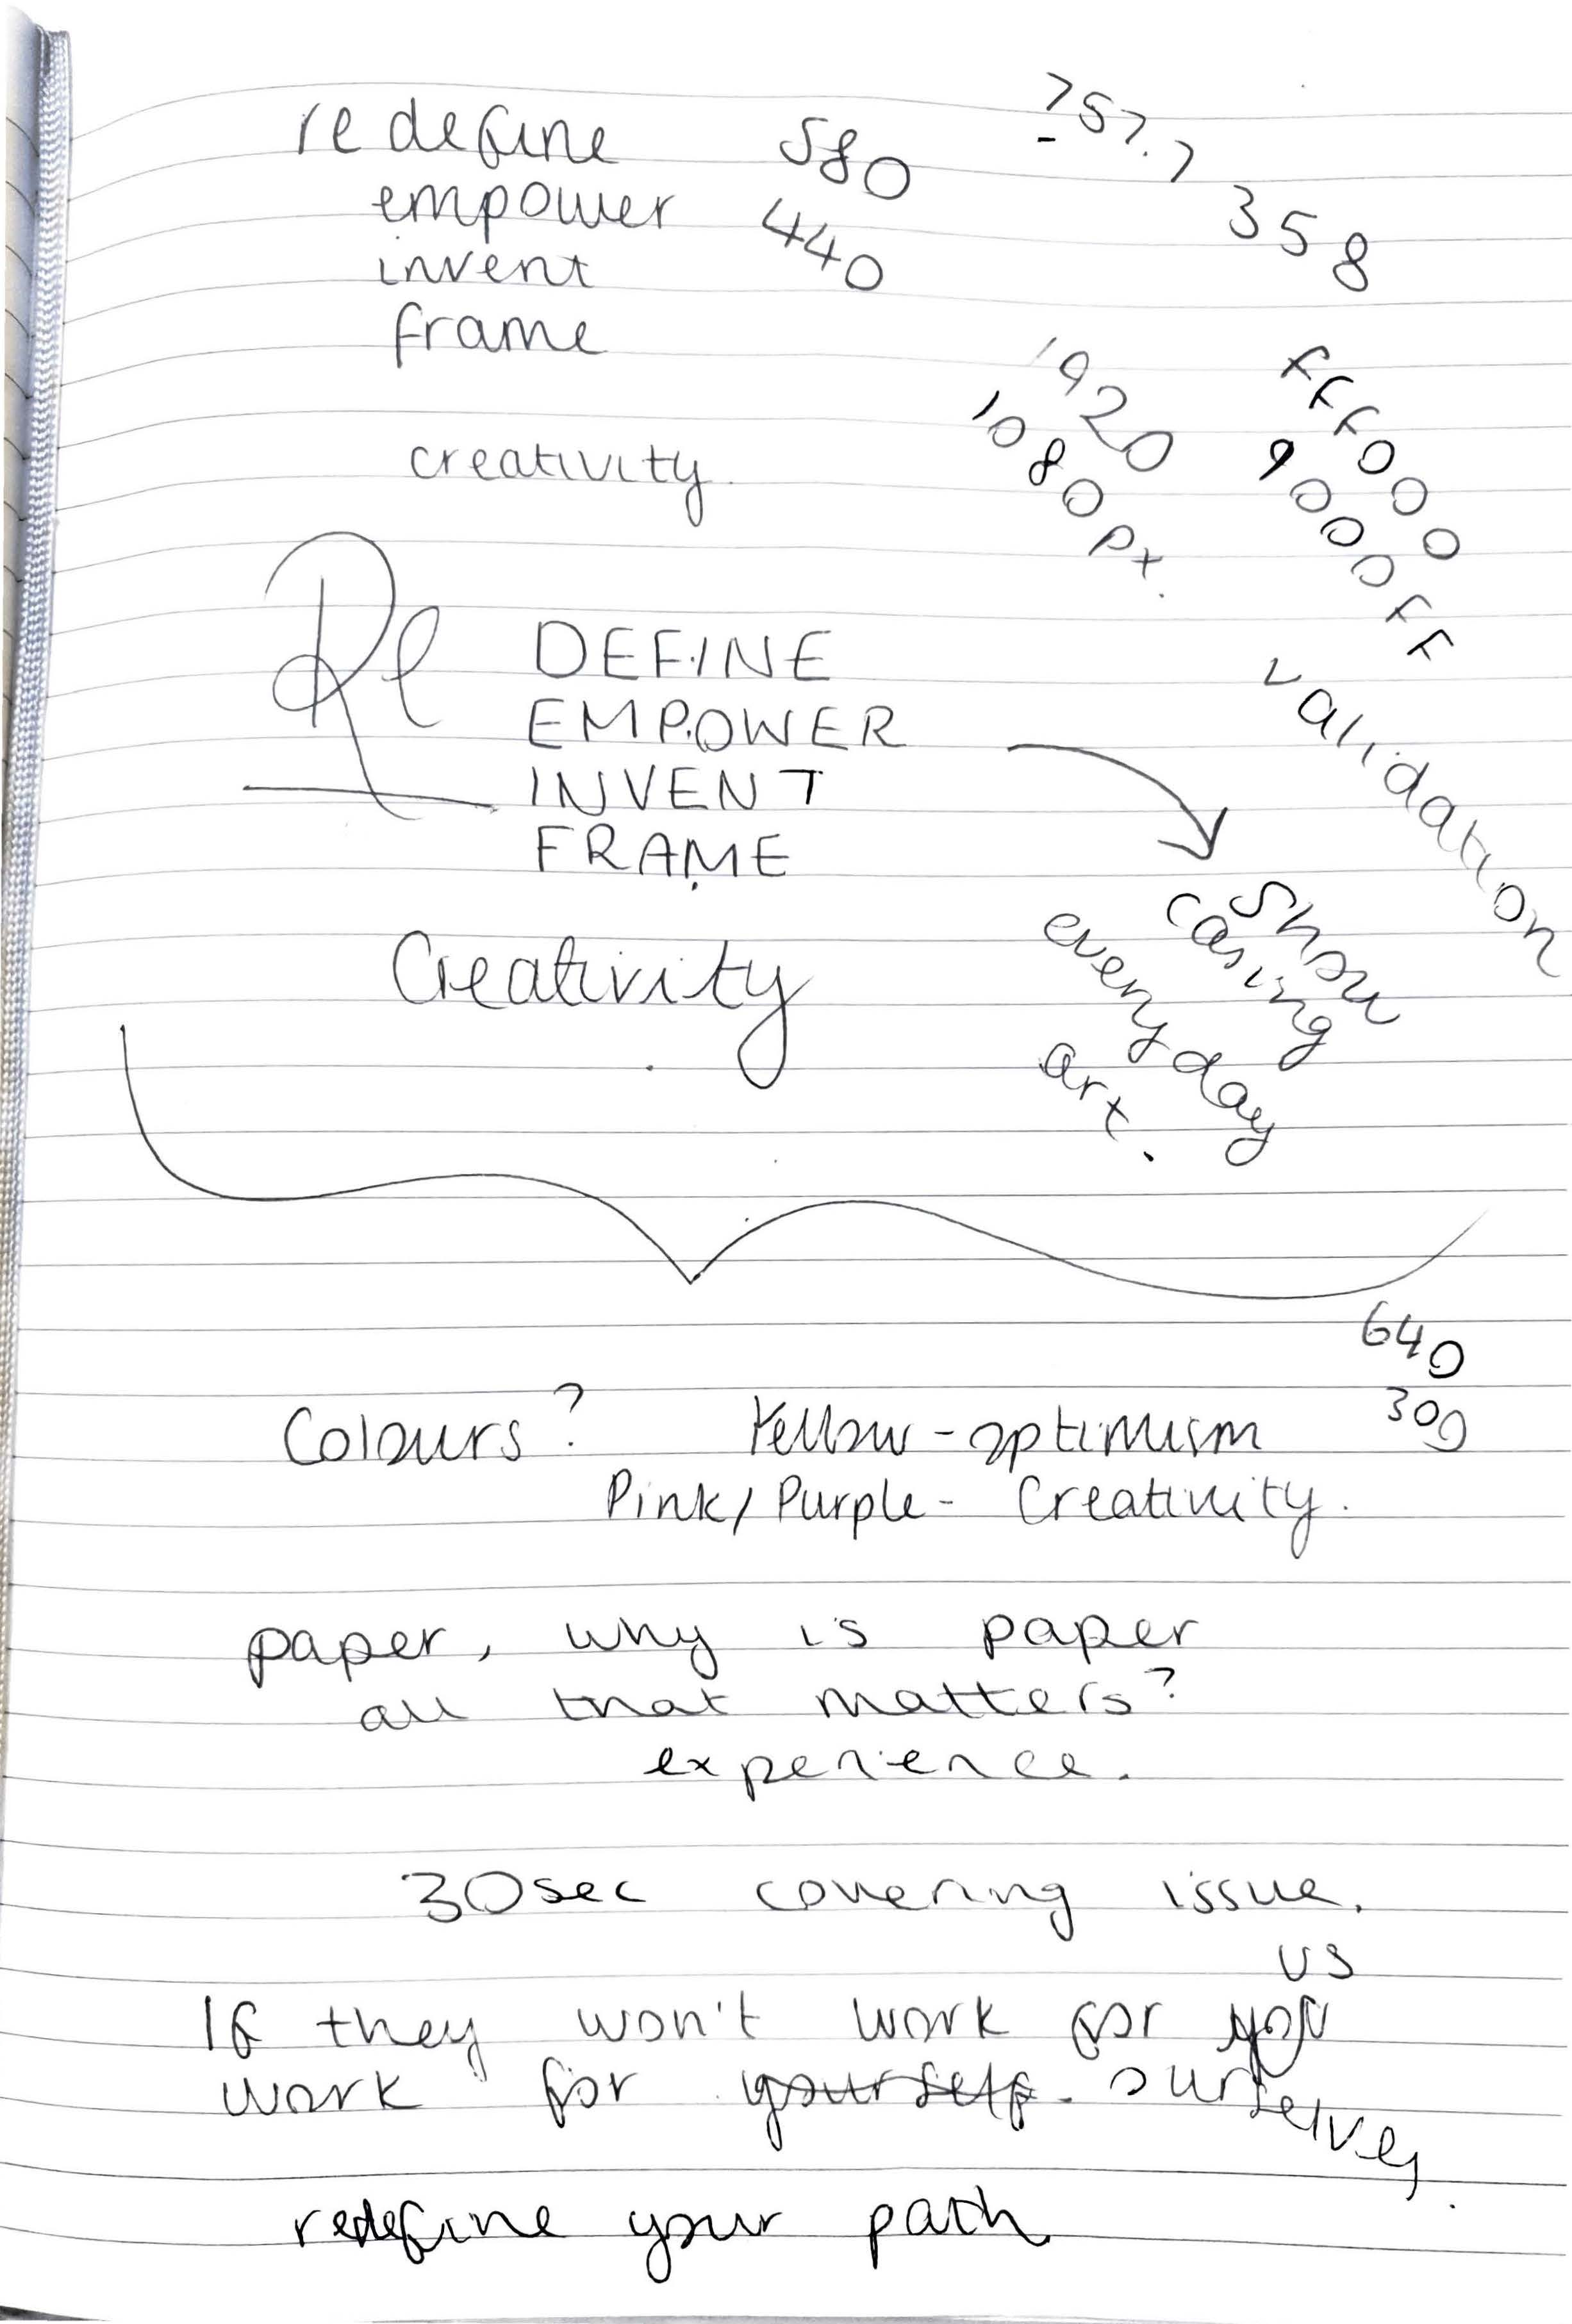 redefine 580 257.7
empower 440 358
invent
frame
1920 fff000
1080px. 9000ff
creativity.
Re DEFINE
EMPOWER
INVENT
FRAME
validation
Show
casing
everyday
art.
Creativity
640
300
Colours? Yellow - optimism
Pink/Purple - Creativity.
paper, why is paper
all that matters?
experience.
30sec covering issue.
us
If they won't work for you
work for yourself. ourselves.
redefine your path